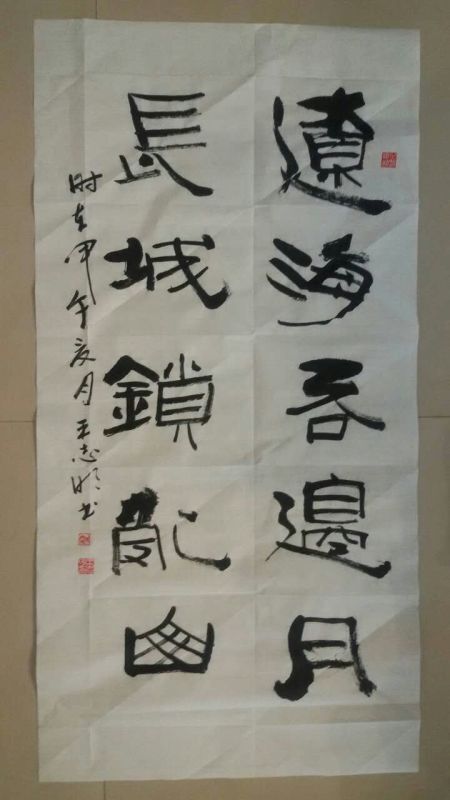 遼海吞邊月
長城鎖亂山
时在甲午夏月王志明书